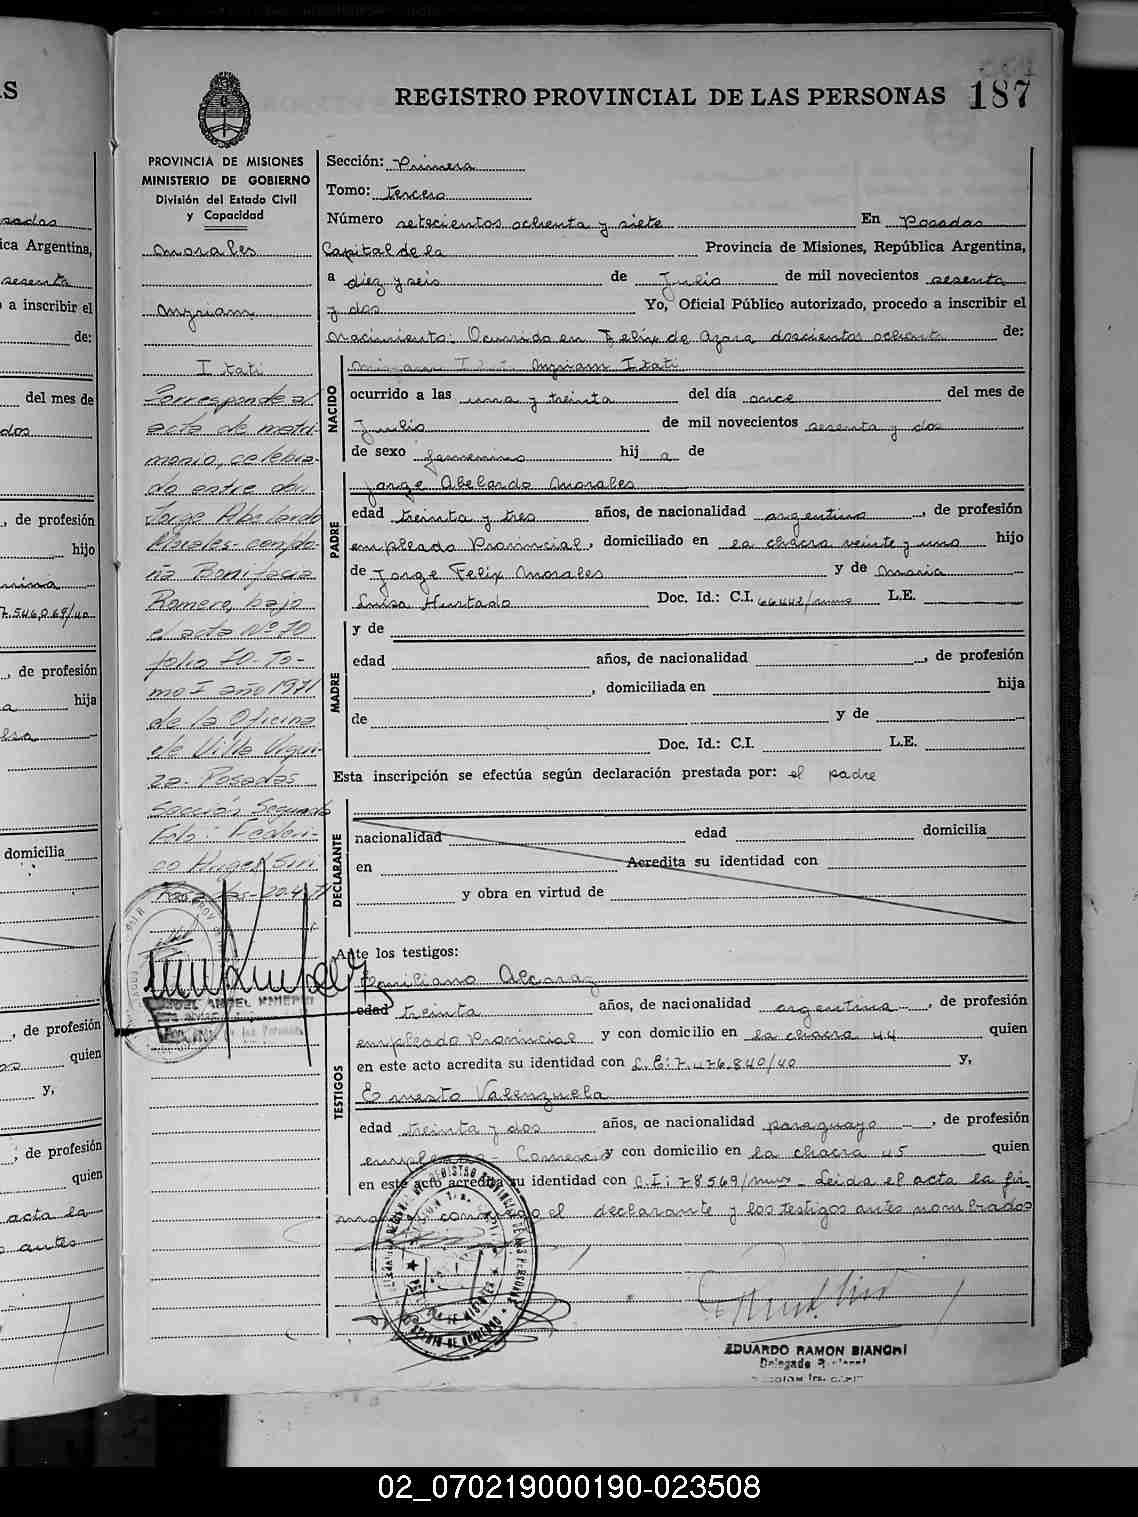 REGISTRO PROVINCIAL DE LAS PERSONAS 187
PROVINCIA DE MISIONES
MINISTERIO DE GOBIERNO
División del Estado Civil
y Capacidad
Morales
Myriam
Itati
Corresponde al
acta de matri-
monio, celebra-
do entre don
Jorge Abelardo
Morales- con do-
ña Bonifacia
Romero, bajo
el acta Nº 70
folio 70- To-
mo I año 1971
de la Oficina
de Villa Urqui-
za- Posadas
Sección Segunda
Sección: Primera
Tomo: tercero
Número setecientos ochenta y siete En Posadas
Capital de la Provincia de Misiones, República Argentina,
a diez y seis de Julio de mil novecientos sesenta
y dos Yo, Oficial Público autorizado, procedo a inscribir el
nacimiento: Ocurrido en Felix de Azara doscientos ochenta de:
NACIDO
Myriam Itati
ocurrido a las una y treinta del día once del mes de
Julio de mil novecientos sesenta y dos
de sexo femenino hij a de
PADRE
Jorge Abelardo Morales
edad treinta y tres años, de nacionalidad argentino, de profesión
empleado Provincial, domiciliado en la chacra veinte y uno hijo
de Jorge Felix Morales y de Maria
Luisa Hurtado Doc. Id.: C.I. 66442/mnes L.E.
MADRE
y de
edad años, de nacionalidad , de profesión
, domiciliada en hija
de y de
Doc. Id.: C.I. L.E.
Esta inscripción se efectúa según declaración prestada por: el padre
DECLARANTE
nacionalidad edad domicilia
en Acredita su identidad con
y obra en virtud de
Ante los testigos:
TESTIGOS
Emiliano Alcaraz
edad treinta años, de nacionalidad argentina, de profesión
empleado Provincial y con domicilio en la chacra 44 quien
en este acto acredita su identidad con L.E: 7.476.840/40 y,
Ernesto Valenzuela
edad treinta y dos años, de nacionalidad paraguayo, de profesión
empleado- Comercio y con domicilio en la chacra 45 quien
en este acto acredita su identidad con C.I: 78569/mns - Leida el acta la fir-
man conmigo el declarante y los testigos antes nombrados
EDUARDO RAMON BIANCHI
02_070219000190-023508